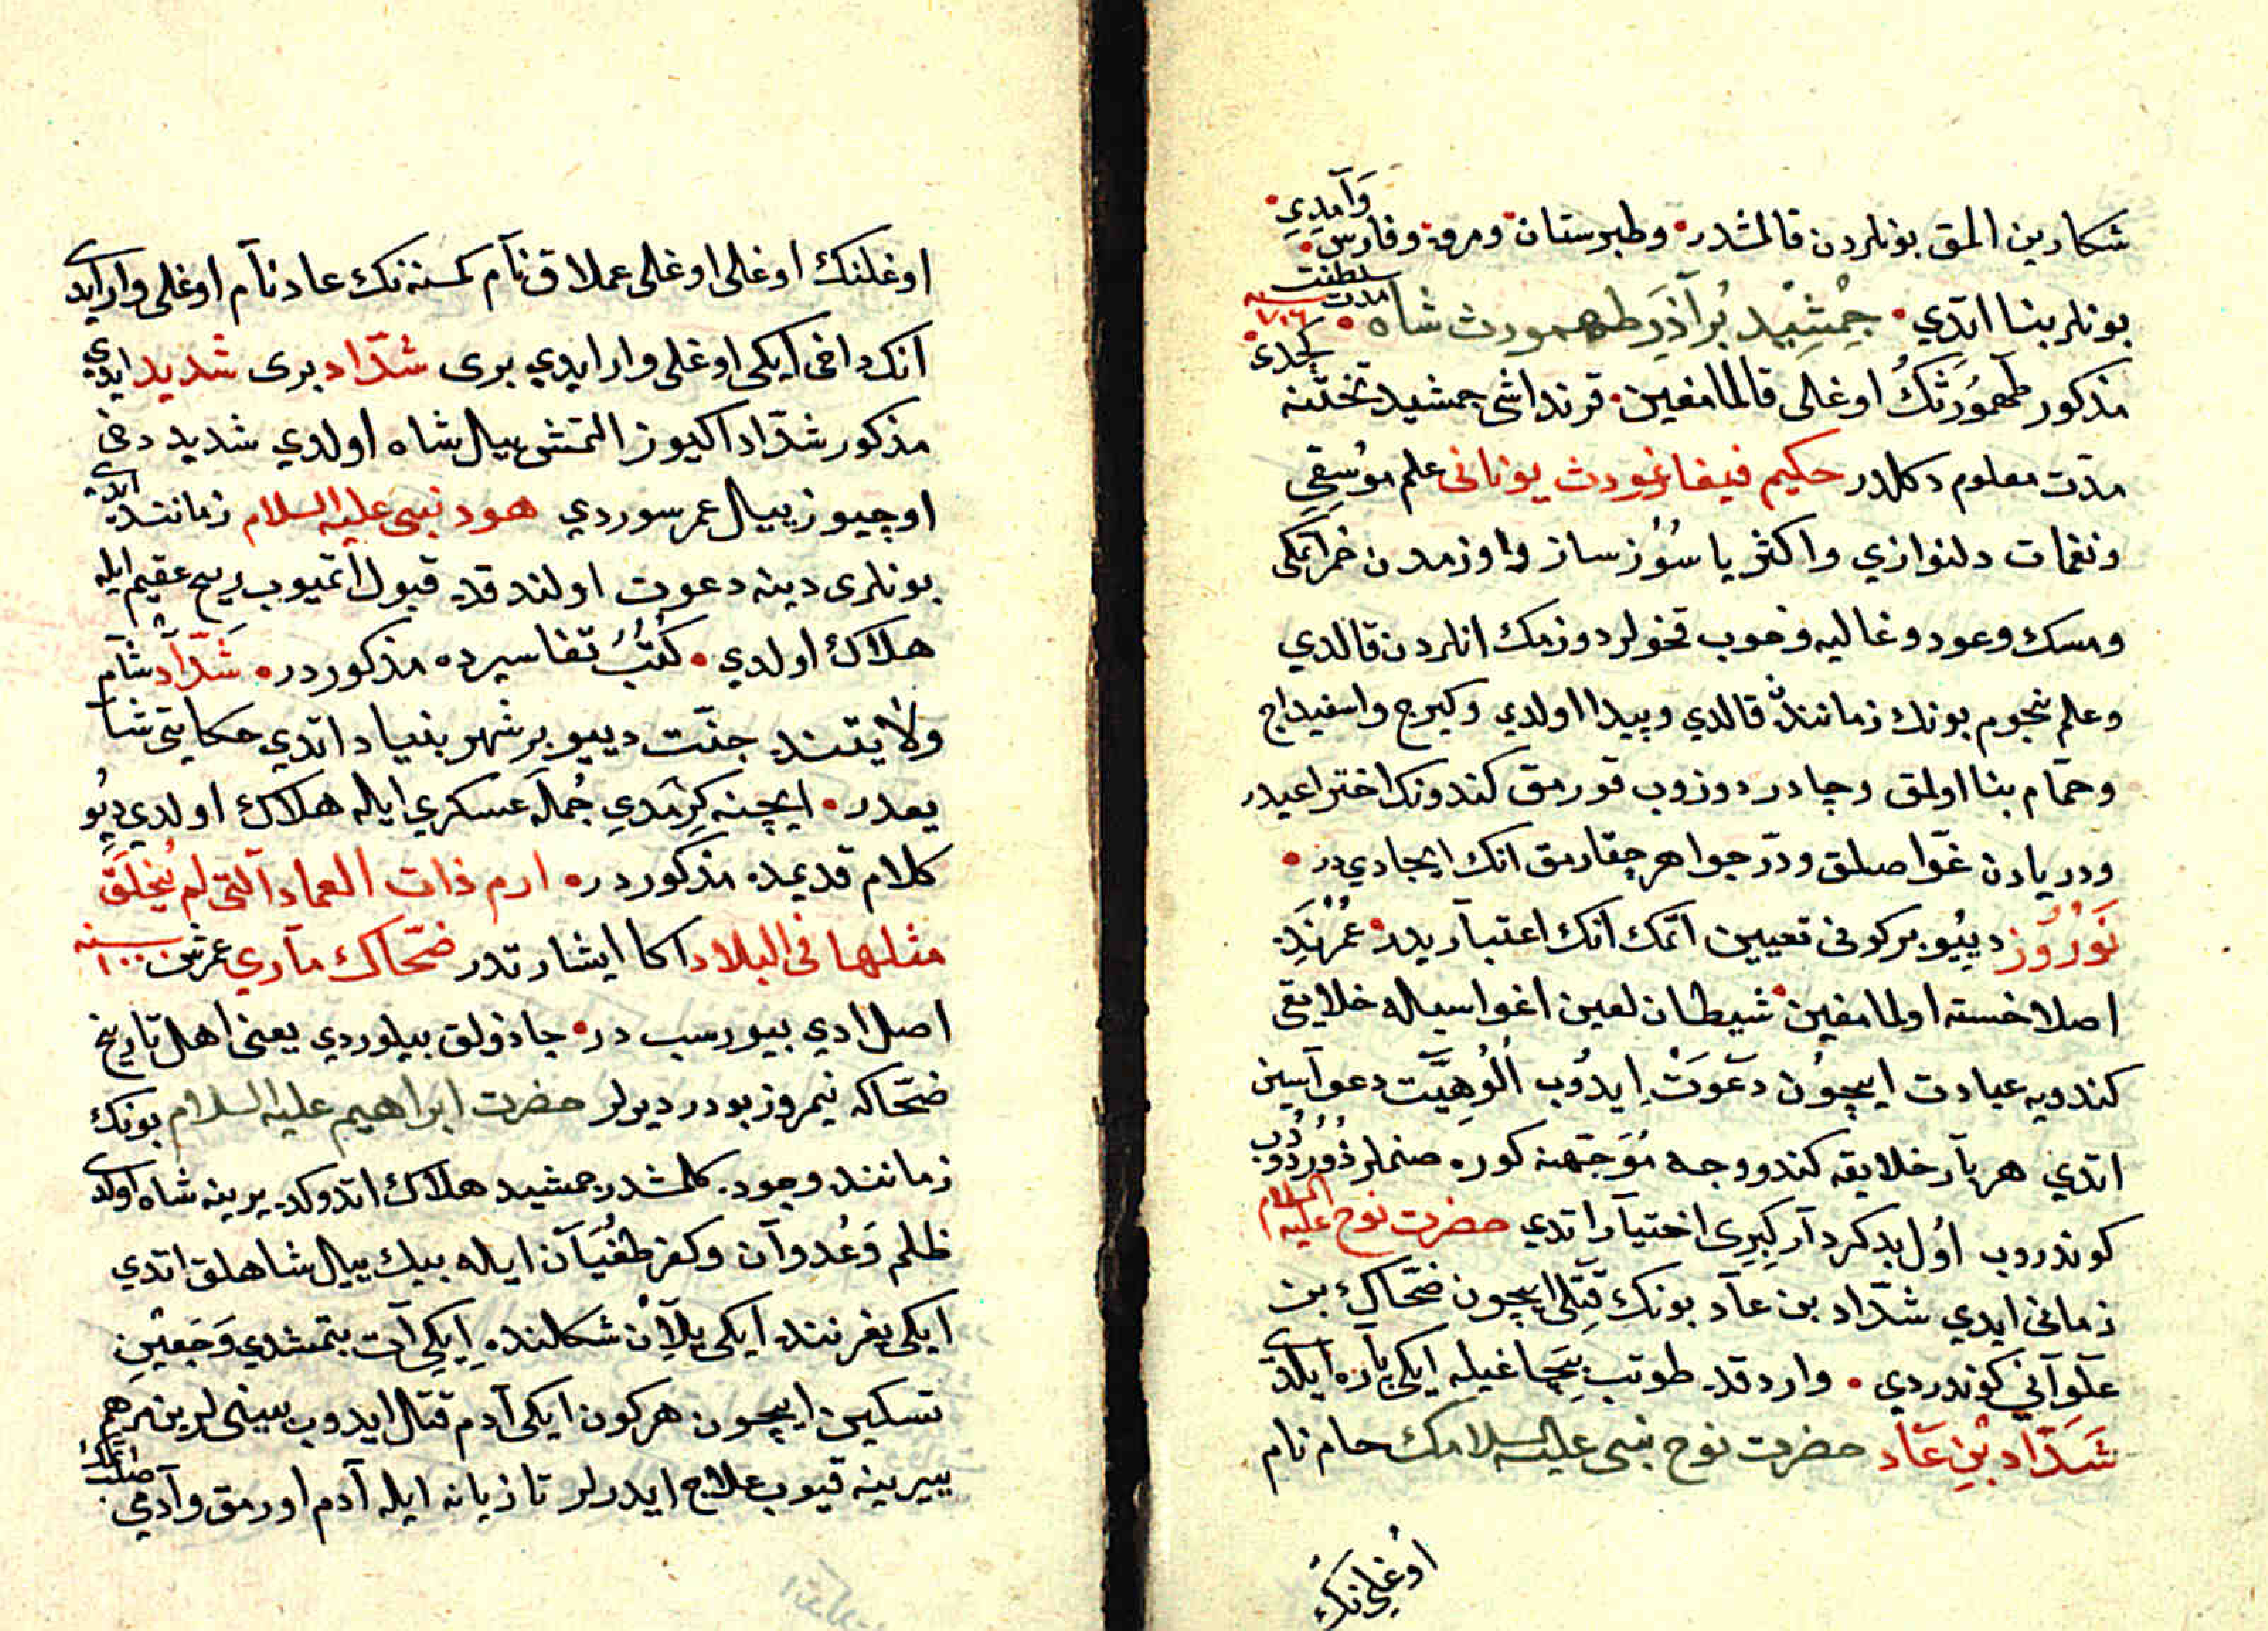 شكارين المق بونلردن قالمشدر وطبرستان ومرو وفارس وآمدي
بونلر بنا اتدي جمشيد برآذر طهمورث شاه مدت سلطنت سنه ٧١٦
مذكور طهمورثك اوغلى قالمامغين قرنداشى جمشيد تختنه كچدى
مدت معلوم دكلدر حكيم فيفاغورث يونانى علم موسقي
ونغمات دلنوازي واكثر يا سوز ساز واوزمدن خمر اتمكى
ومسك وعود وغاليه وخوب قخولر دوزمك انلردن قالدي
وعلم نجوم بونك زماننده قالدي وپيدا اولدي وكيرج واسفيداج
وحمام بنا اولمق وچادر دوزوب قورمق كندونك اختراعيدر
ودريادن غواصلق ودر جواهر چقارمق انك ايجادي در
نوروز ديو بركونى تعيين اتمك انك اعتباريدر عمرنده
اصلا خسته اولمامغين شيطان لعين اغواسيله خلايقى
كندويه عبادت ايچون دعوت ايدوب الوهيت دعواسين
اتدي هر بار خلايقه كندو وجه موجهنه كوره صنملر دوزدوب
كوندروب اول بدكردار كبرى اختيار اتدي حضرت نوح عليه السلام
زمانى ايدي شداد بن عاد بونك قتلى ايچون ضحاك بن
علوآني كوندردي واردقده طوتب بچاغيله ايكى پاره ايلدى
شداد بن عاد حضرت نوح نبى عليه السلامك حام نام
اوغلنك
اوغلنك اوغلى اوغلى عملاق نام كمسنه نك عاد نام اوغلى وار ايدى
انك داخى ايكى اوغلى وار ايدي برى شداد برى شديد ايدي
مذكور شداد اكيوز التمش ييل شاه اولدي شديد دخى
اوچيوز ييل عمر سوردي هود نبى عليه السلام زماننده ايدى
بونلرى دينه دعوت اولندقده قبول اتميوب ريح عقيم ايله
هلاك اولدي كتب تفاسيرده مذكوردر شداد شام
ولايتنده جنت ديو بر شهر بنياد اتدي حكايتى شا
يعدر ايچنه كرمدي جمله عسكري ايله هلاك اولدي ديو
كلام قديمده مذكوردر ارم ذات العماد التى لم يخلق
مثلها فى البلاد اكا ايشارتدر ضحاك ماري عمرش سنه ١٠٠٠
اصل ادي بيورسب در جاذولق بيلوردي يعنى اهل تاريخ
ضحاكه نيمروز بودر ديرلر حضرت ابراهيم عليه السلام بونك
زماننده وجوده كلمشدر جمشيد هلاك اتدوكده يرينه شاه اولدى
ظلم وعدوان وكفر طغيان ايله بيك ييل شاهلق اتدي
ايكى يغرننده ايكى يلان شكلنده ايكى ات بتمشدي وجعين
تسكين ايچون هركون ايكى آدم قتل ايدوب بينى لرين مرهم
ييرينه قيوب علاج ايدرلر تازيانه ايله آدم اورمق وآدمي صلب اتمك